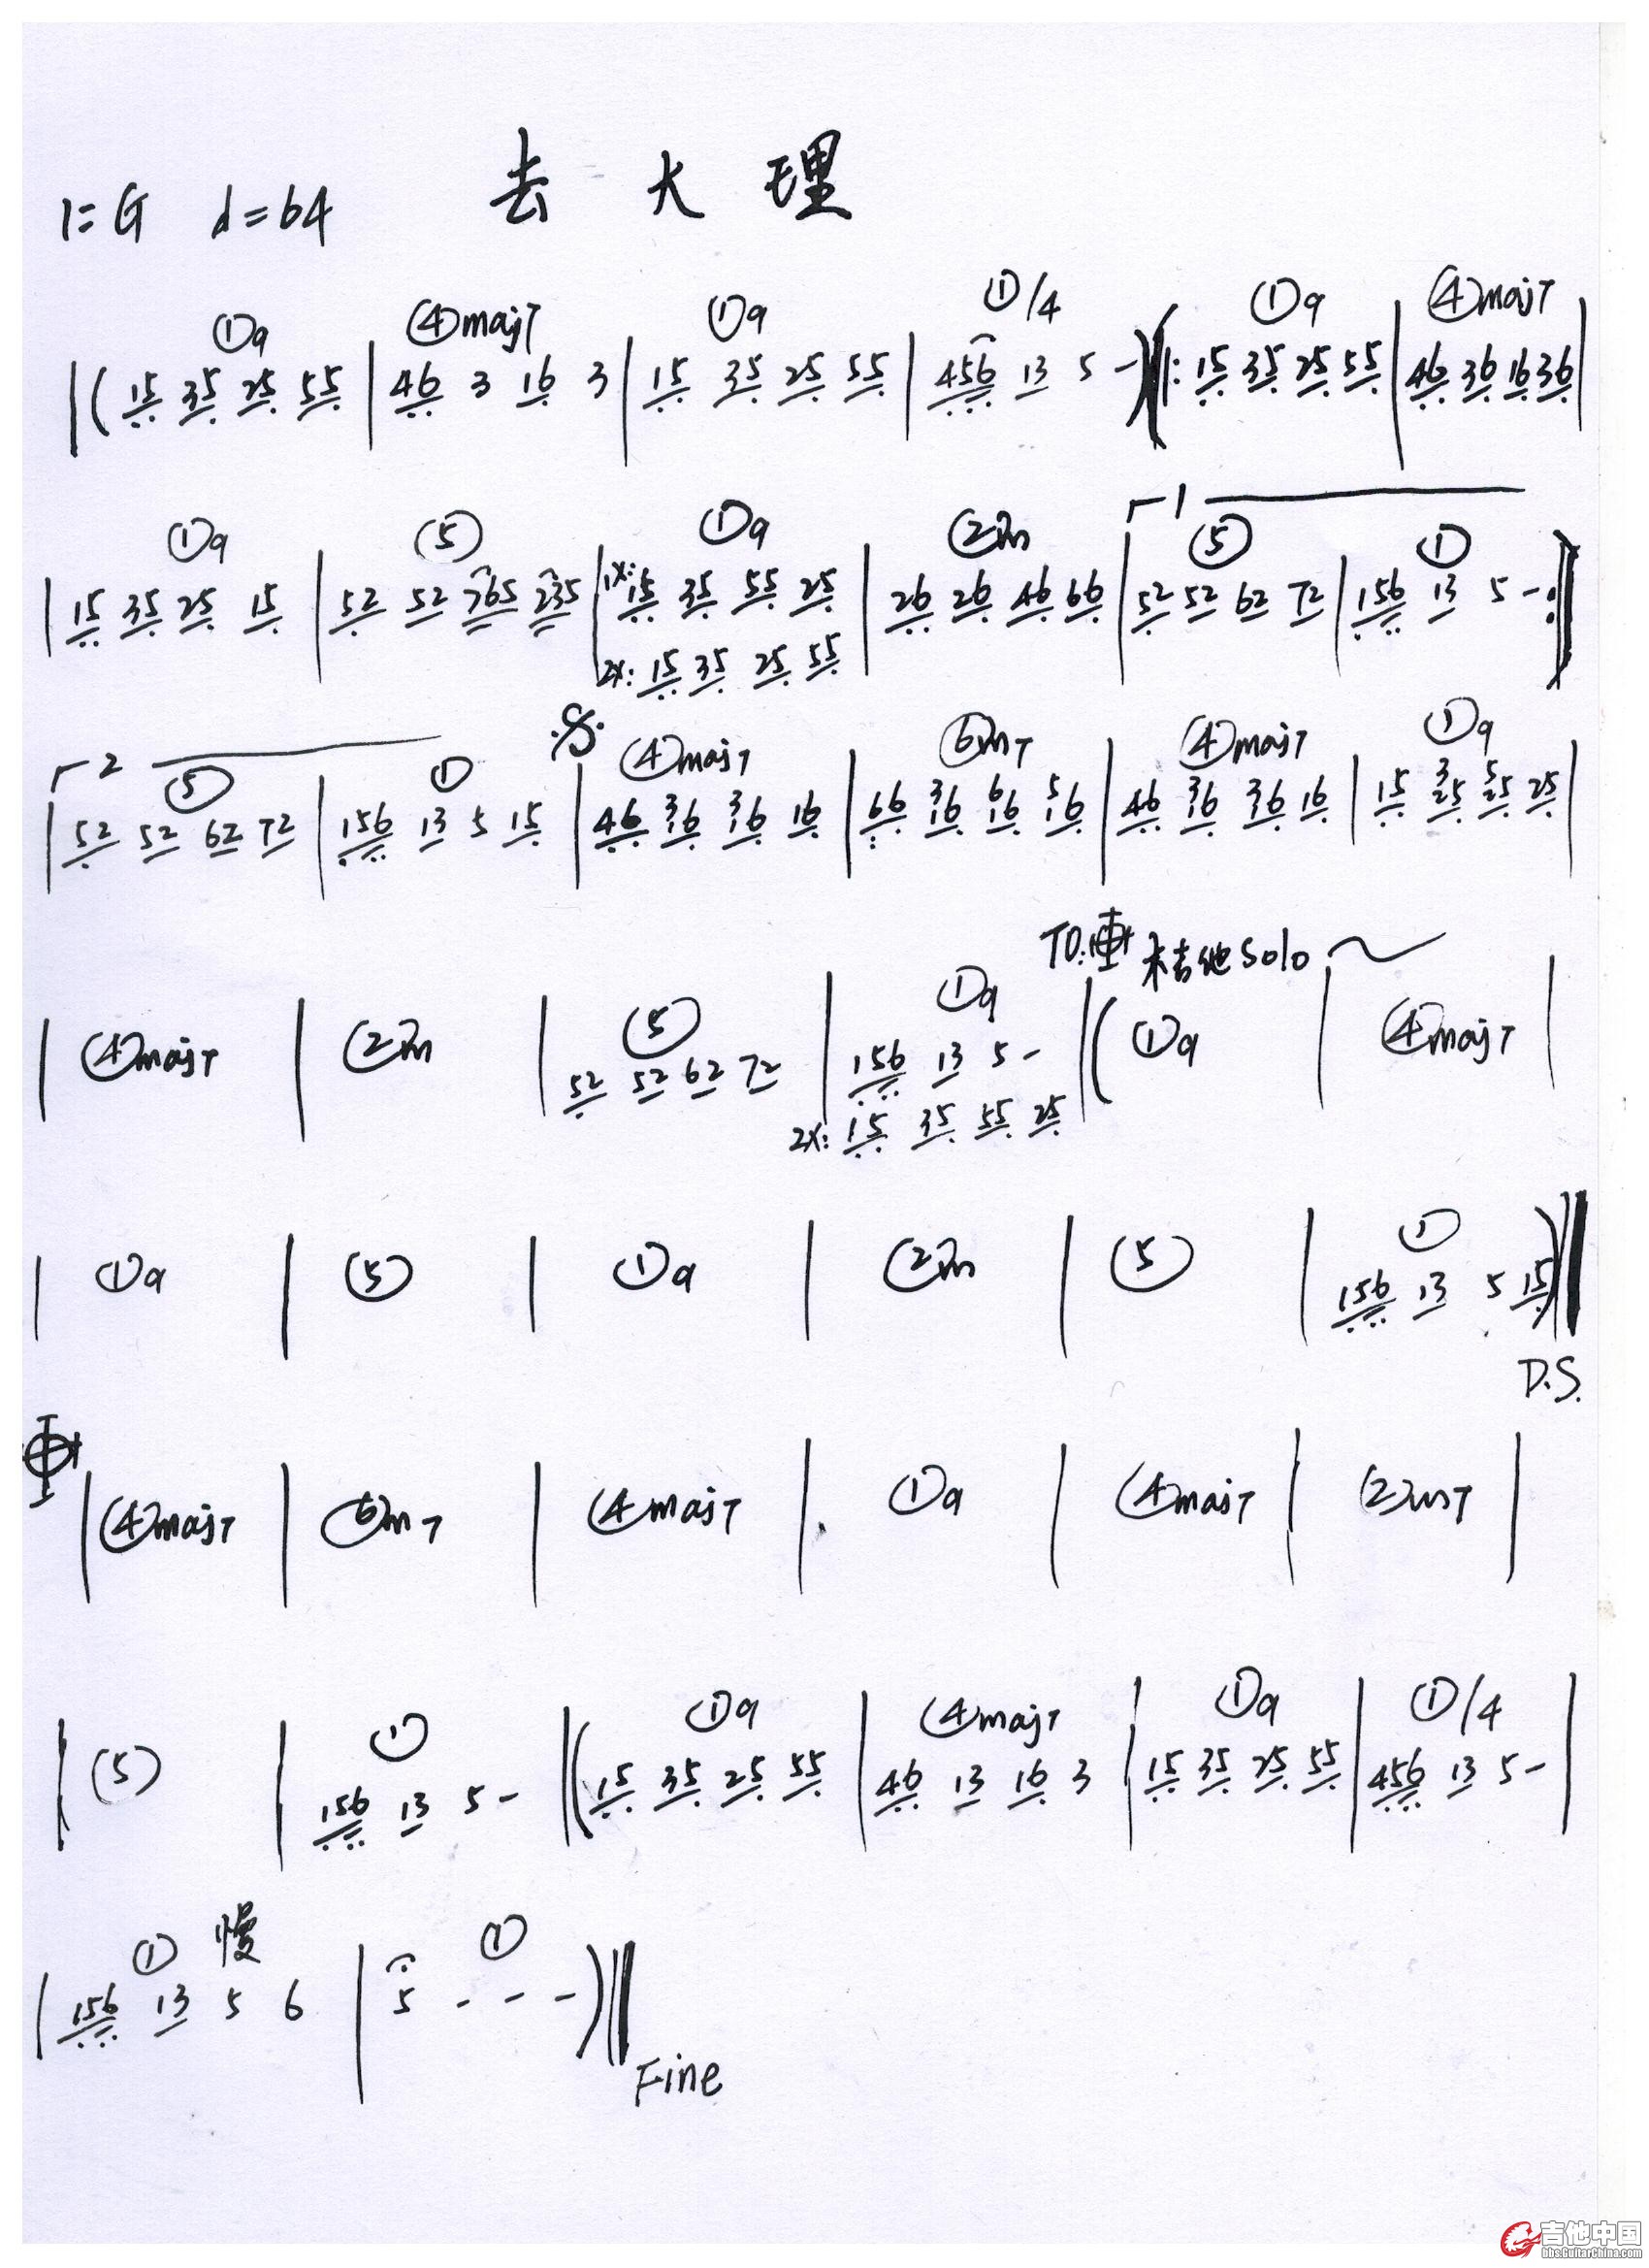 去大理
1=G ♩=64
①9 ④maj7 ①9 ①/4 ①9 ④maj7
|( 15 35 25 55 | 46 3 16 3 | 15 35 25 55 | 456 13 5 - )‖: 15 35 25 55 | 46 36 16 36 |
①9 ⑤ ①9 ②m ┌1 ⑤ ①
| 15 35 25 15 | 52 52 765 235 | 1X: 15 35 55 25 | 26 26 46 66 | 52 52 62 72 | 156 13 5 - :‖
2X: 15 35 25 55
┌2 ⑤ ① 𝄋 ④maj7 ⑥m7 ④maj7 ①9
3 3 3 6 5 3 3 5
| 52 52 62 72 | 156 13 5 15 | 46 16 16 16 | 66 16 16 16 | 46 16 36 16 | 15 25 25 25 |
TO: 𝄌 木吉他solo
| ④maj7 | ②m | ⑤ | ①9 ‖( ①9 | ④maj7 |
52 52 62 72 | 156 13 5 -
2X: 15 35 55 25
| ①9 | ⑤ | ①9 | ②m | ⑤ | ①
156 13 5 15 )‖
D.S.
𝄌
| ④maj7 | ⑥m7 | ④maj7 | ①9 | ④maj7 | ②m7 |
| ⑤ | ① ‖ ①9 ④maj7 ①9 ①/4
156 13 5 - ‖( 15 35 25 55 | 46 13 16 3 | 15 35 25 55 | 456 13 5 - |
① 慢 ①
| 156 13 5 6 | 5 - - - )‖
Fine
吉他中国
bbs.GuitarChina.com